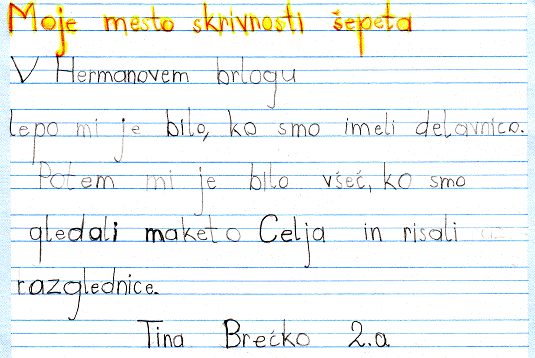 Moje mesto skrivnosti šepeta
V Hermanovem brlogu
lepo mi je bilo, ko smo imeli delavnico.
Potem mi je bilo všeč, ko smo
gledali maketo Celja in risali
razglednice.
Tina Brečko 2.a